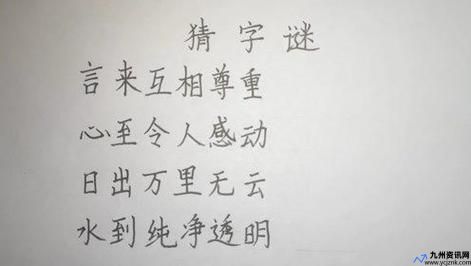 猜字谜
言来互相尊重
心至令人感动
日出万里无云
水到纯净透明
九州资讯网
www.ycjznk.com